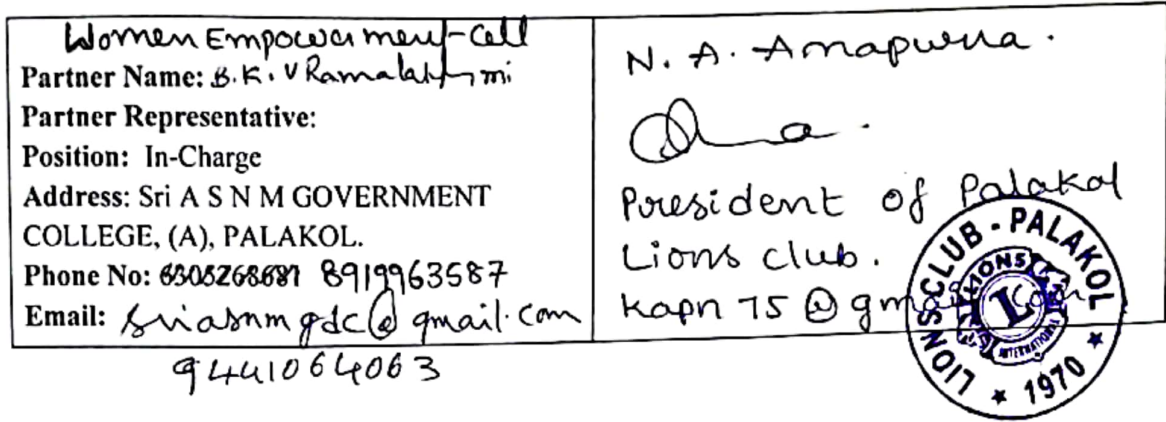 Women Empowerment-Cell
Partner Name: B.K.V Ramalakshmi
Partner Representative:
Position: In-Charge
Address: Sri A S N M GOVERNMENT
COLLEGE, (A), PALAKOL.
Phone No: 8919963587
Email: sriasnmgdc@gmail.com
9441064063
N. A. Annapurna.
President of Palakol
Lions club.
kapn75@gmail.com
LIONS CLUB - PALAKOL
* 1970 *
LIONS
L
INTERNATIONAL